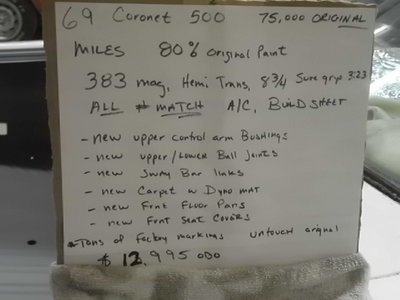 69 Coronet 500 75,000 ORIGINAL
MILES 80% Original Paint
383 mag, Hemi Trans, 8 3/4 Sure grip 3:23
ALL # MATCH A/C, BUILD SHEET
- new upper control arm BUSHINGS
- new upper/LOWER Ball Joints
- new Sway Bar links
- new Carpet w DYNO MAT
- new Frnt Floor Pans
- new Frnt Seat COVERS
*Tons of factory markings untouch orignal
$ 12,995 OBO